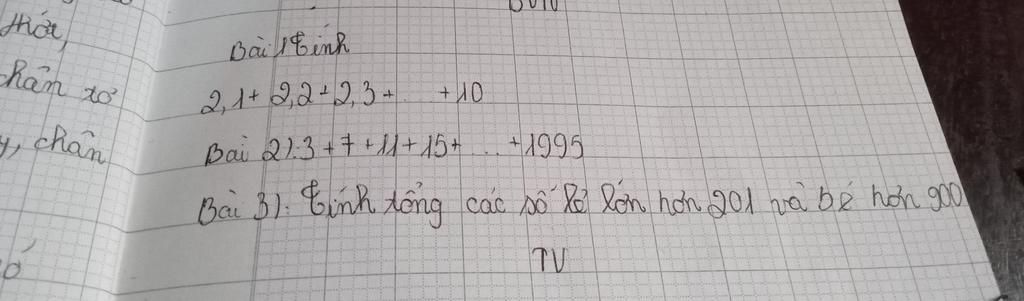 thớ,
Bài 1 tính
hần tơ
2,1+ 2,2+2,3+ . . . +10
y, chần
Bài 2): 3 + 7 +11+15+ . . . +1995
Bài 3): tính tổng các số lẻ lớn hơn 201 và bé hơn 900
TV
ó